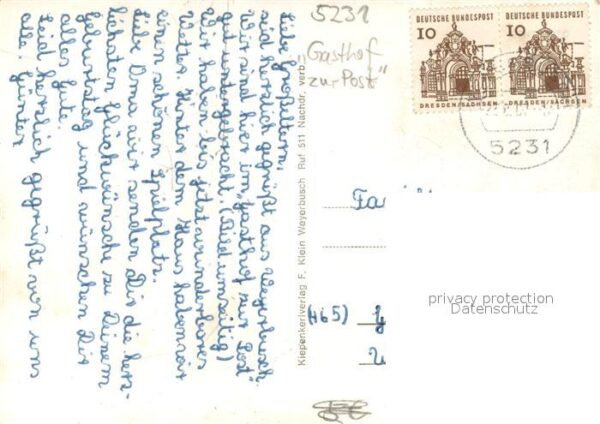 Liebe Großeltern,
seid herzlich gegrüßt aus Weyerbusch.
Wir sind hier im Gasthof zur Post"
gut untergebracht. (Bild umseitig)
Wir haben bis jetzt wunderbares
Wetter. Hinter dem Haus haben wir
einen schönen Spielplatz.
Liebe Oma wir senden Dir die herz-
lichsten Glückwünsche zu Deinem
Geburtstag und wünschen Dir
alles Gute.
Seid herzlich gegrüßt von uns
alle. Günter
Kiepenkerlverlag F. Klein Weyerbusch Ruf 511 Nachdr. verb.
5231
"Gasthof
zur Post"
DEUTSCHE BUNDESPOST
10
DRESDEN/SACHSEN
DEUTSCHE BUNDESPOST
10
DRESDEN/SACHSEN
5231
Fa
(465)
privacy protection
Datenschutz